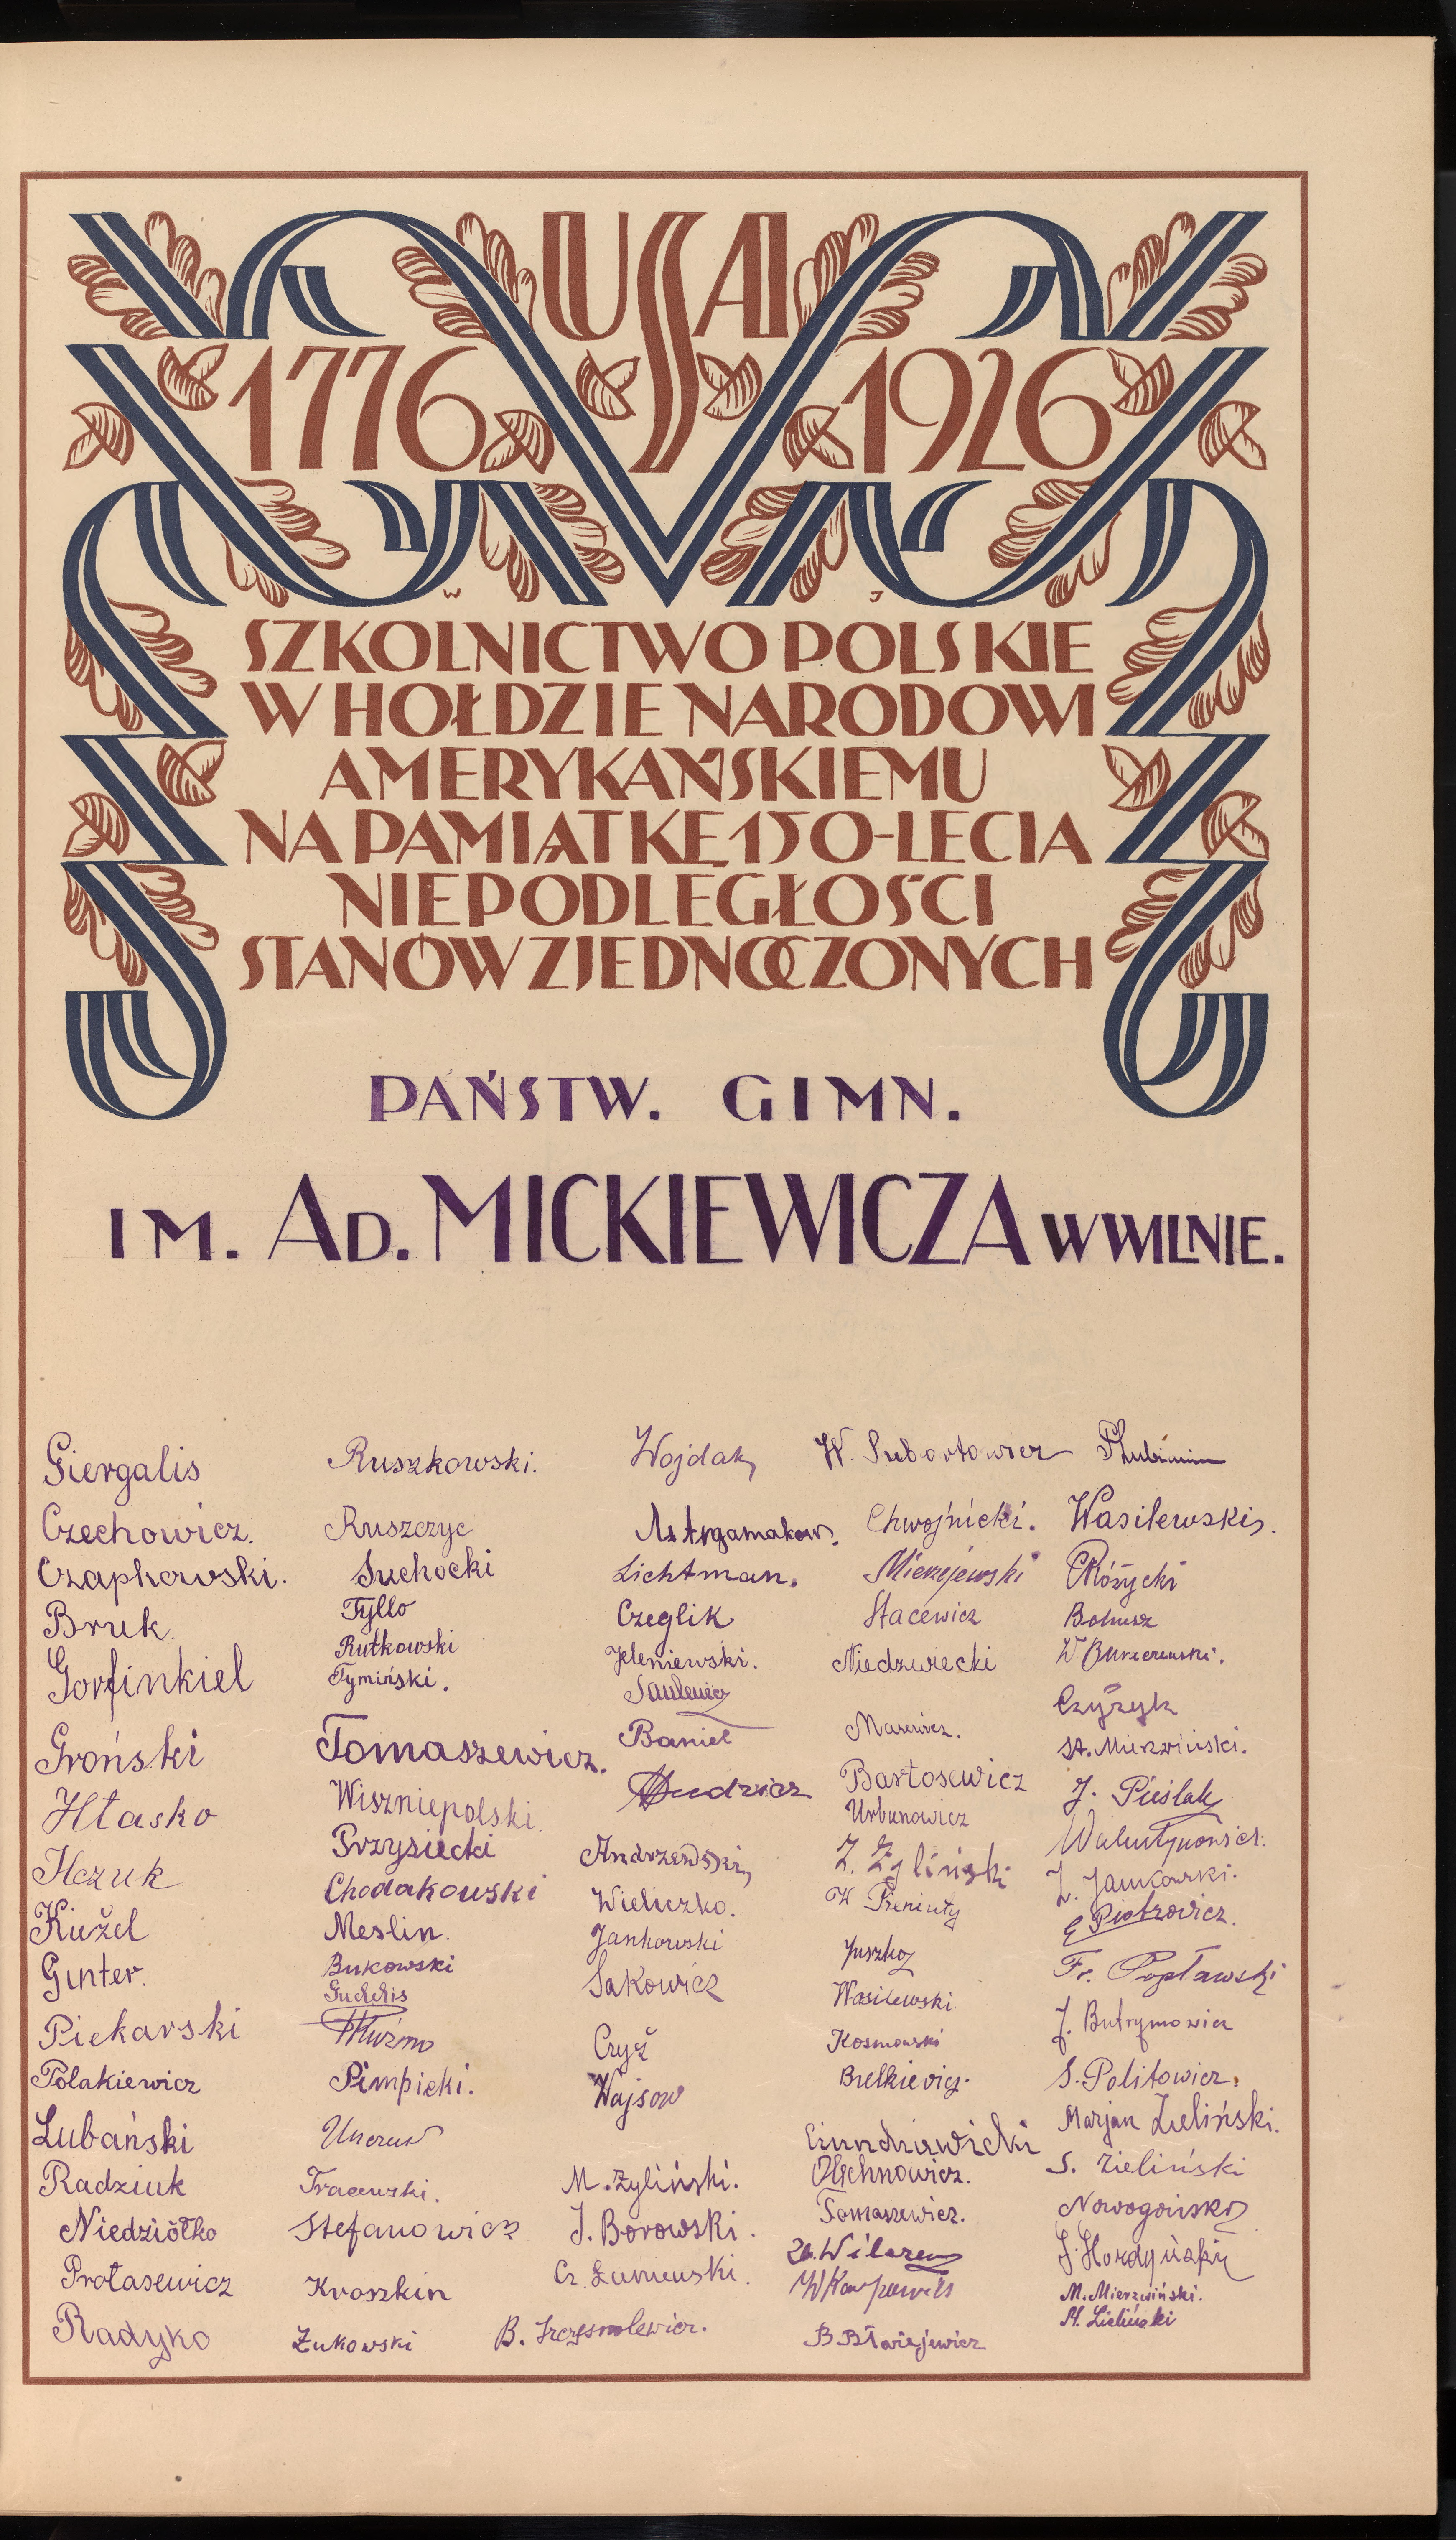 USA
1776 1926
W J
SZKOLNICTWO POLSKIE
W HOŁDZIE NARODOWI
AMERYKAŃSKIEMU
NA PAMIĄTKĘ 150-LECIA
NIEPODLEGŁOŚCI
STANÓW ZJEDNOCZONYCH
PAŃSTW. GIMN.
IM. AD. MICKIEWICZA W WILNIE.
Giergalis
Czechowicz.
Czapkowski.
Bruk.
Gorfinkiel
Groński
Hłasko
Ilczuk
Kużel
Ginter.
Piekarski
Polakiewicz
Lubański
Radziuk
Niedziółko
Protasewicz
Radyko
Ruszkowski.
Ruszczyc
Suchocki
Tyllo
Rutkowski
Tymiński.
Tomaszewicz.
Wiszniepolski.
Przysiecki
Chodakowski
Meslin.
Bukowski
Pimpicki.
Stefanowicz
Kroszkin
Żukowski
Wojdak
Astrgamakow.
Lichtman.
Czeglik
Jeleniewski.
Saulewicz
Baniel
Andrzewski
Wieliczko.
Jankowski
Sakowicz
Czyż
Wajsow
M. Żyliński.
J. Borowski.
W. Subortowicz
Chwojnicki.
Mierzejewski
Stacewicz
Niedzwiecki
Masewicz.
Bartosewicz
Urbanowicz
Z. Żyliński
Juszko
Wasilewski.
Kosmowski
Olechnowicz.
Tomaszewicz.
B Błażejewicz
Wasilewski.
Różycki
Bohusz
Czyżyk
St. Mierzwiński.
J. Pieślak
Walentynowicz.
Z. Jankowski.
E Piotrowicz.
Fr. Popławski
J. Butrymowicz
S. Politowicz.
Marjan Zieliński.
S. Zieliński
J. Hordyński
M. Mierzwiński.
St. Zieliński